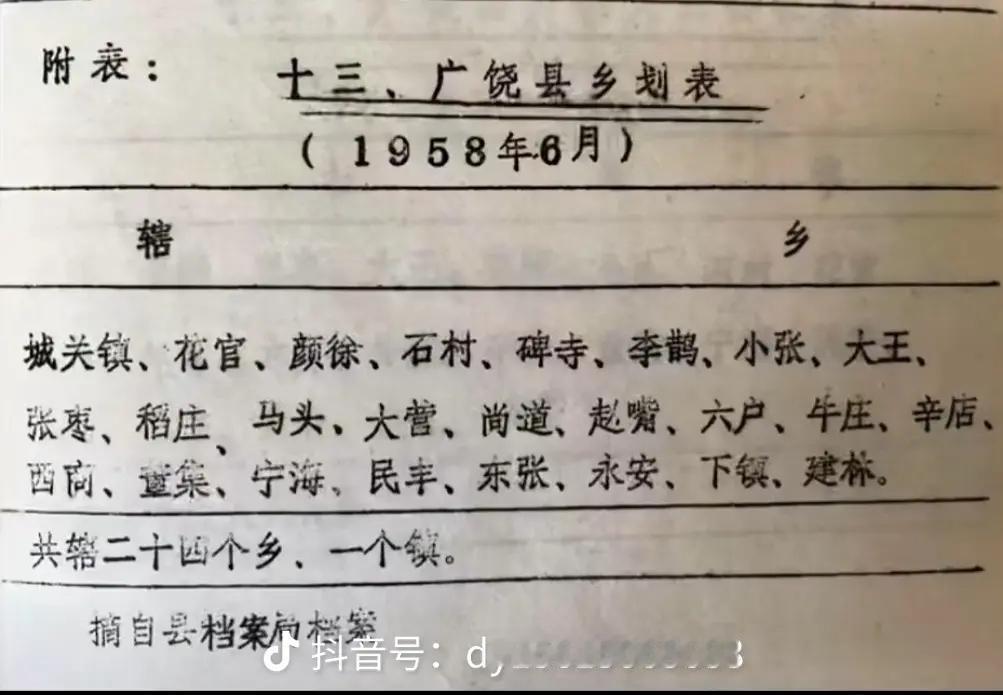 附表：
十三、广饶县乡划表
（1958年6月）
辖 乡
城关镇、花官、颜徐、石村、碑寺、李鹊、小张、大王、
张枣、稻庄、马头、大营、尚道、赵嘴、六户、牛庄、辛店、
西商、董集、宁海、民丰、东张、永安、下镇、建林。
共辖二十四个乡、一个镇。
摘自县档案局档案
抖音号：